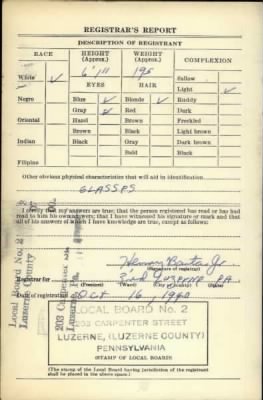 REGISTRAR'S REPORT
DESCRIPTION OF REGISTRANT
RACE
HEIGHT (Approx.)
WEIGHT (Approx.)
COMPLEXION
6' 1"
195
White ✓
EYES
HAIR
Sallow
Light ✓
Negro
Blue ✓
Blonde ✓
Ruddy
Gray ✓
Red
Dark
Oriental
Hazel
Brown
Freckled
Brown
Black
Light brown
Indian
Black
Gray
Dark brown
Bald
Black
Filipino
Other obvious physical characteristics that will aid in identification
GLASSES
I certify that my answers are true; that the person registered has read or has had
read to him his own answers; that I have witnessed his signature or mark and that
all of his answers of which I have knowledge are true, except as follows:
Local Board No. 2
Luzerne County
(Signature of registrar)
Registrar for 3rd LUZERNE PA.
(Precinct) (Ward) (City or County) (State)
Date of registration Oct. 16, 1940
LOCAL BOARD No. 2
203 CARPENTER STREET
LUZERNE, (LUZERNE COUNTY)
PENNSYLVANIA
(STAMP OF LOCAL BOARD)
(The stamp of the Local Board having jurisdiction of the registrant
shall be placed in the above space.)